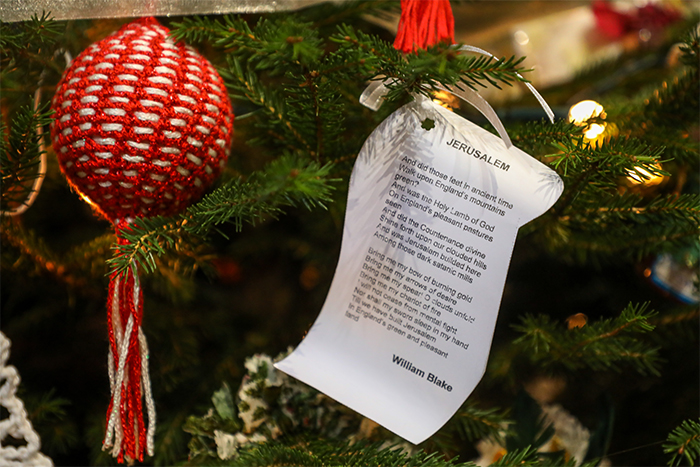 JERUSALEM
And did those feet in ancient time
Walk upon England's mountains
green?
And was the Holy Lamb of God
On England's pleasant pastures
seen
And did the Countenance divine
Shine forth upon our clouded hills
And was Jerusalem builded here
Among those dark satanic mills
Bring me my bow of burning gold
Bring me my arrows of desire
Bring me my spear! O clouds unfold
Bring me my chariot of fire
I will not cease from mental fight
Nor shall my sword sleep in my hand
Till we have built Jerusalem
In England's green and pleasant
land
William Blake